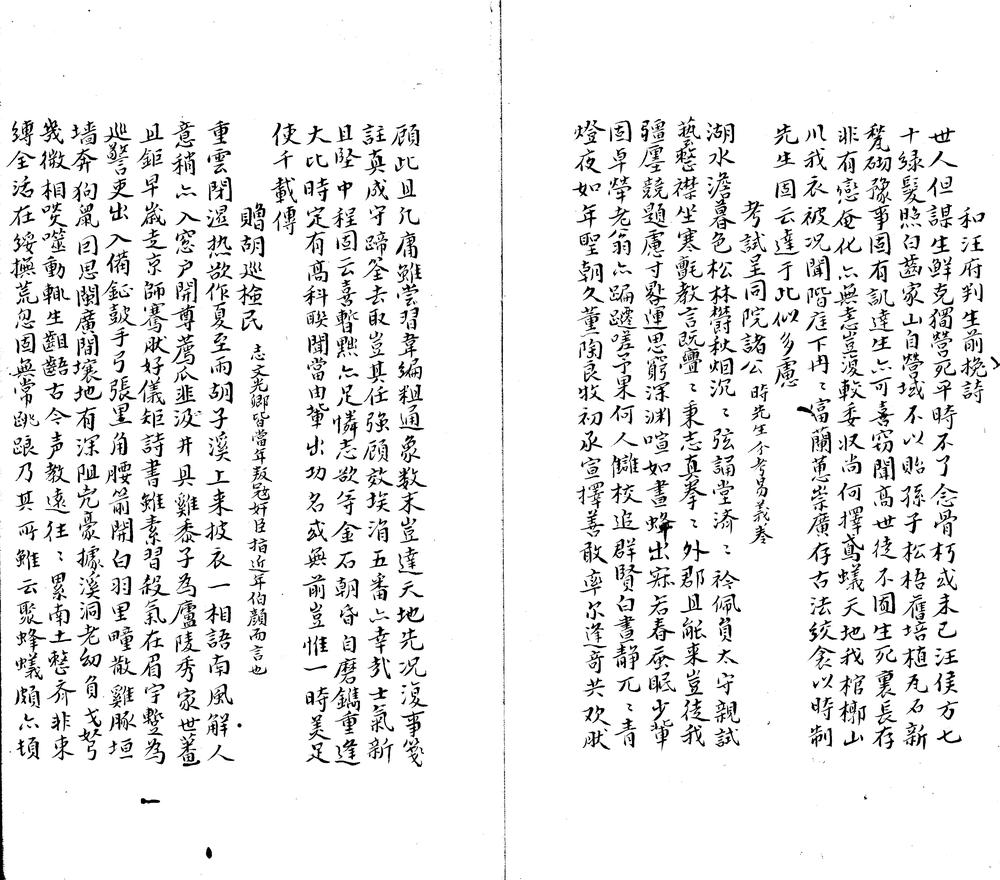 和汪府判生前挽詩
世人但謀生鮮克獨營死平時不了念骨朽或未已汪侯方七
十綠髮照白齒家山自營域不以貽孫子松梧舊培植瓦石新
甃砌豫事固有訊達生亦可喜竊聞高世徒不囿生死裏長存
非有戀奄化亦無恚豈復較委収尚何擇鳶蟻天地我棺槨山
川我衣被況聞階庭下冉〻富蘭蕙崇廣存古法絞衾以時制
先生固云達于此似多慮
考試呈同院諸公時先生分考易義卷
湖水澹暮色松林欝秋烟沉〻弦誦堂济〻衿佩負太守親試
藝整襟坐寒氈教言既亹〻秉志真拳〻外郡且能来豈徒我
疆廛競題慮寸晷運思窮深渊喧如晝蜂出寐若春蚕眠少軰
固卓犖老翁亦蹁躚嗟予果何人讎校追群賢白晝静兀〻青
燈夜如年聖朝久薰陶良牧初承宣擇善敢率尔逢奇共欢肰
顧此且孔庸雖尝習韋編粗通象数末豈達天地先况復事箋
註真成守蹄筌去取豈其任强顔效埃涓五番亦幸哉士氣新
且坠中程固云喜暫黜亦足憐志欲等金石朝昏自磨鐫重逢
大比時定有髙科聮閒當由軰出功名或無前豈惟一時美足
使千載傳
贈胡巡檢民志文光卿皆當年叛冦奸臣指近年伯顔而言也
重雲閉濕热欲作夏至雨胡子溪上来披衣一相語南風解人
意稍亦入窓户開尊薦瓜韭汲井具雞黍子為廬陵秀家世蓋
且鉅早歳走京師騫肰好儀矩詩書雖素習殺氣在眉宇蹔為
巡警吏出入備鉦鼓手弓張黒角腰箭開白羽里疃散雞豚垣
墙奔狗鼠因思閩廣間壤地有深阻完豪據溪洞老幼負戈弩
幾微相啖噬動輒生齟齬古今声教遠往〻累南土整齐非束
縛全活在綏撫荒忽固無常跳踉乃其所雖云聚蜂蟻頗亦頓